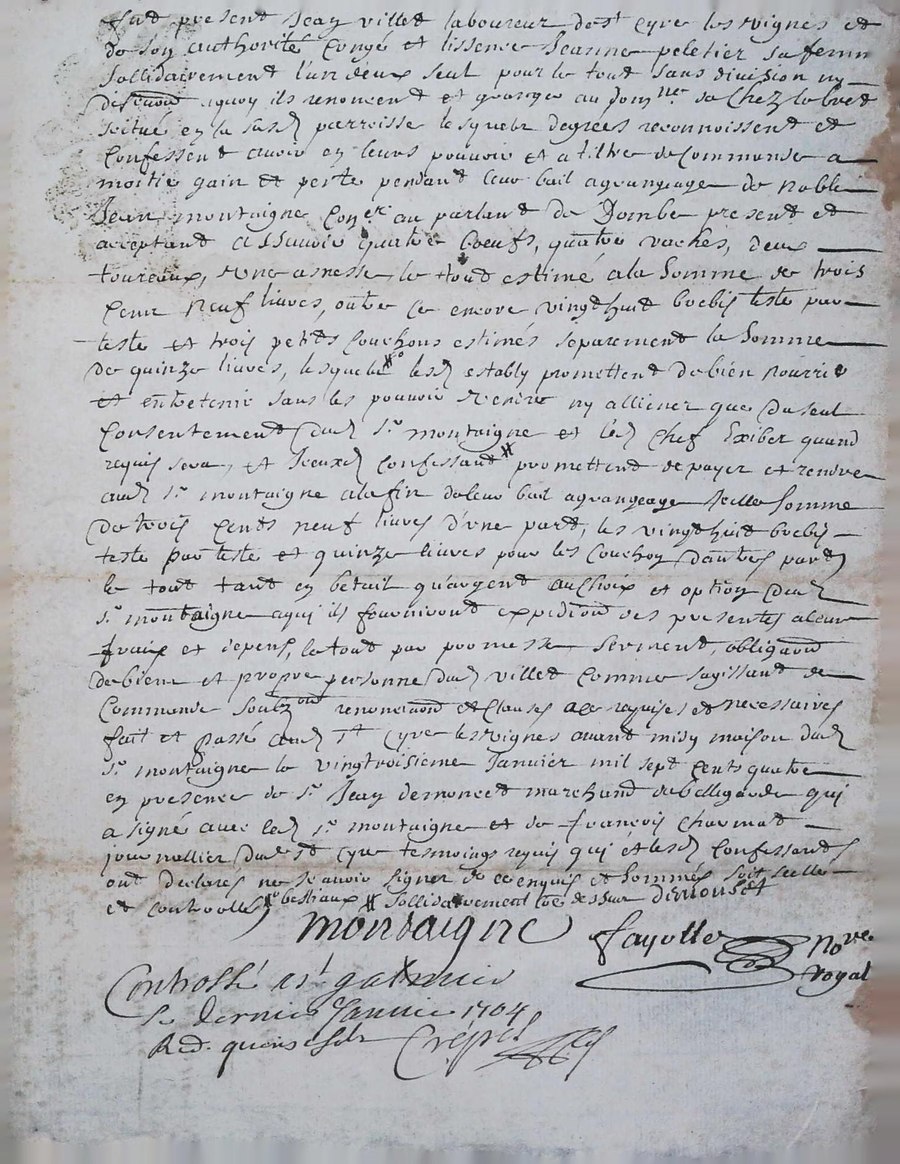 fut present Jean villet laboureur de st cyre les vignes et
de son authorité congé et lissence Jeanne peletier sa femm
sollidairement l'un deux seul pour le tout sans division ny
discution aquoy ils renoncent et granger au dom.ne sa chez labret
scitué en la susd parroisse lesquels degrees reconnoissent et
confessent avoir en leurs pouvoir et a tiltre de commande a
moitié gain et perte pendant leur bail agrangeage de noble
Jean montaigne Coner au parlant de Dombe present et
acceptant assavoir quatre boeufs, quatre vaches, deux
toureaux, & une asnesse le tout estimé a la somme de trois
cent neuf livres, outre ce encore vingthuit brebis teste par
teste et trois petits couchons estimés separement la somme
de quinze livres, lesquels # lesd estably promettent de bien nourrir
et entretenir sans les pouvoir vendre ny alliener que du seul
consentement dud sr montaigne et led chef exiber quand
requis sera, et iceuxd confessant # promettent de payer et rendre
aud sr montaigne a la fin de leur bail agrangeage icelle somme
de trois cents neuf livres d'une part, les vingthuit brebis
teste par teste et quinze livres pour les couchon dautres part
le tout tant en betail qu'argent au choix et option dud
sr montaigne a qui ils fourniront expedition des presentes a leur
fraix et depens, le tout par promesse serment, obligaon
de biens et propre personne dud villet comme sagissant de
commande soubzon renonciaon et clauses requises et necessaires
fait et passé aud st cyre les vignes avant midy maison dud
sr montaigne le vingtroisieme Janvier mil sept cents quatre
en presence de sr Jean demoncet marchand de bellegarde qui
a signé avec led sr montaigne et de francois charmat
journallier dud st cyre tesmoings requis qui et lesd confessants
ont declarés ne scavoir signer de ce enquis et sommés soit scelle
et controllé #o bestiaux # sollidairement comme dessus demonset
montaigne fayolle nore.
royal
Controllé a st galmier
le dernier Janvier 1704
Red. quinse sols Crépet